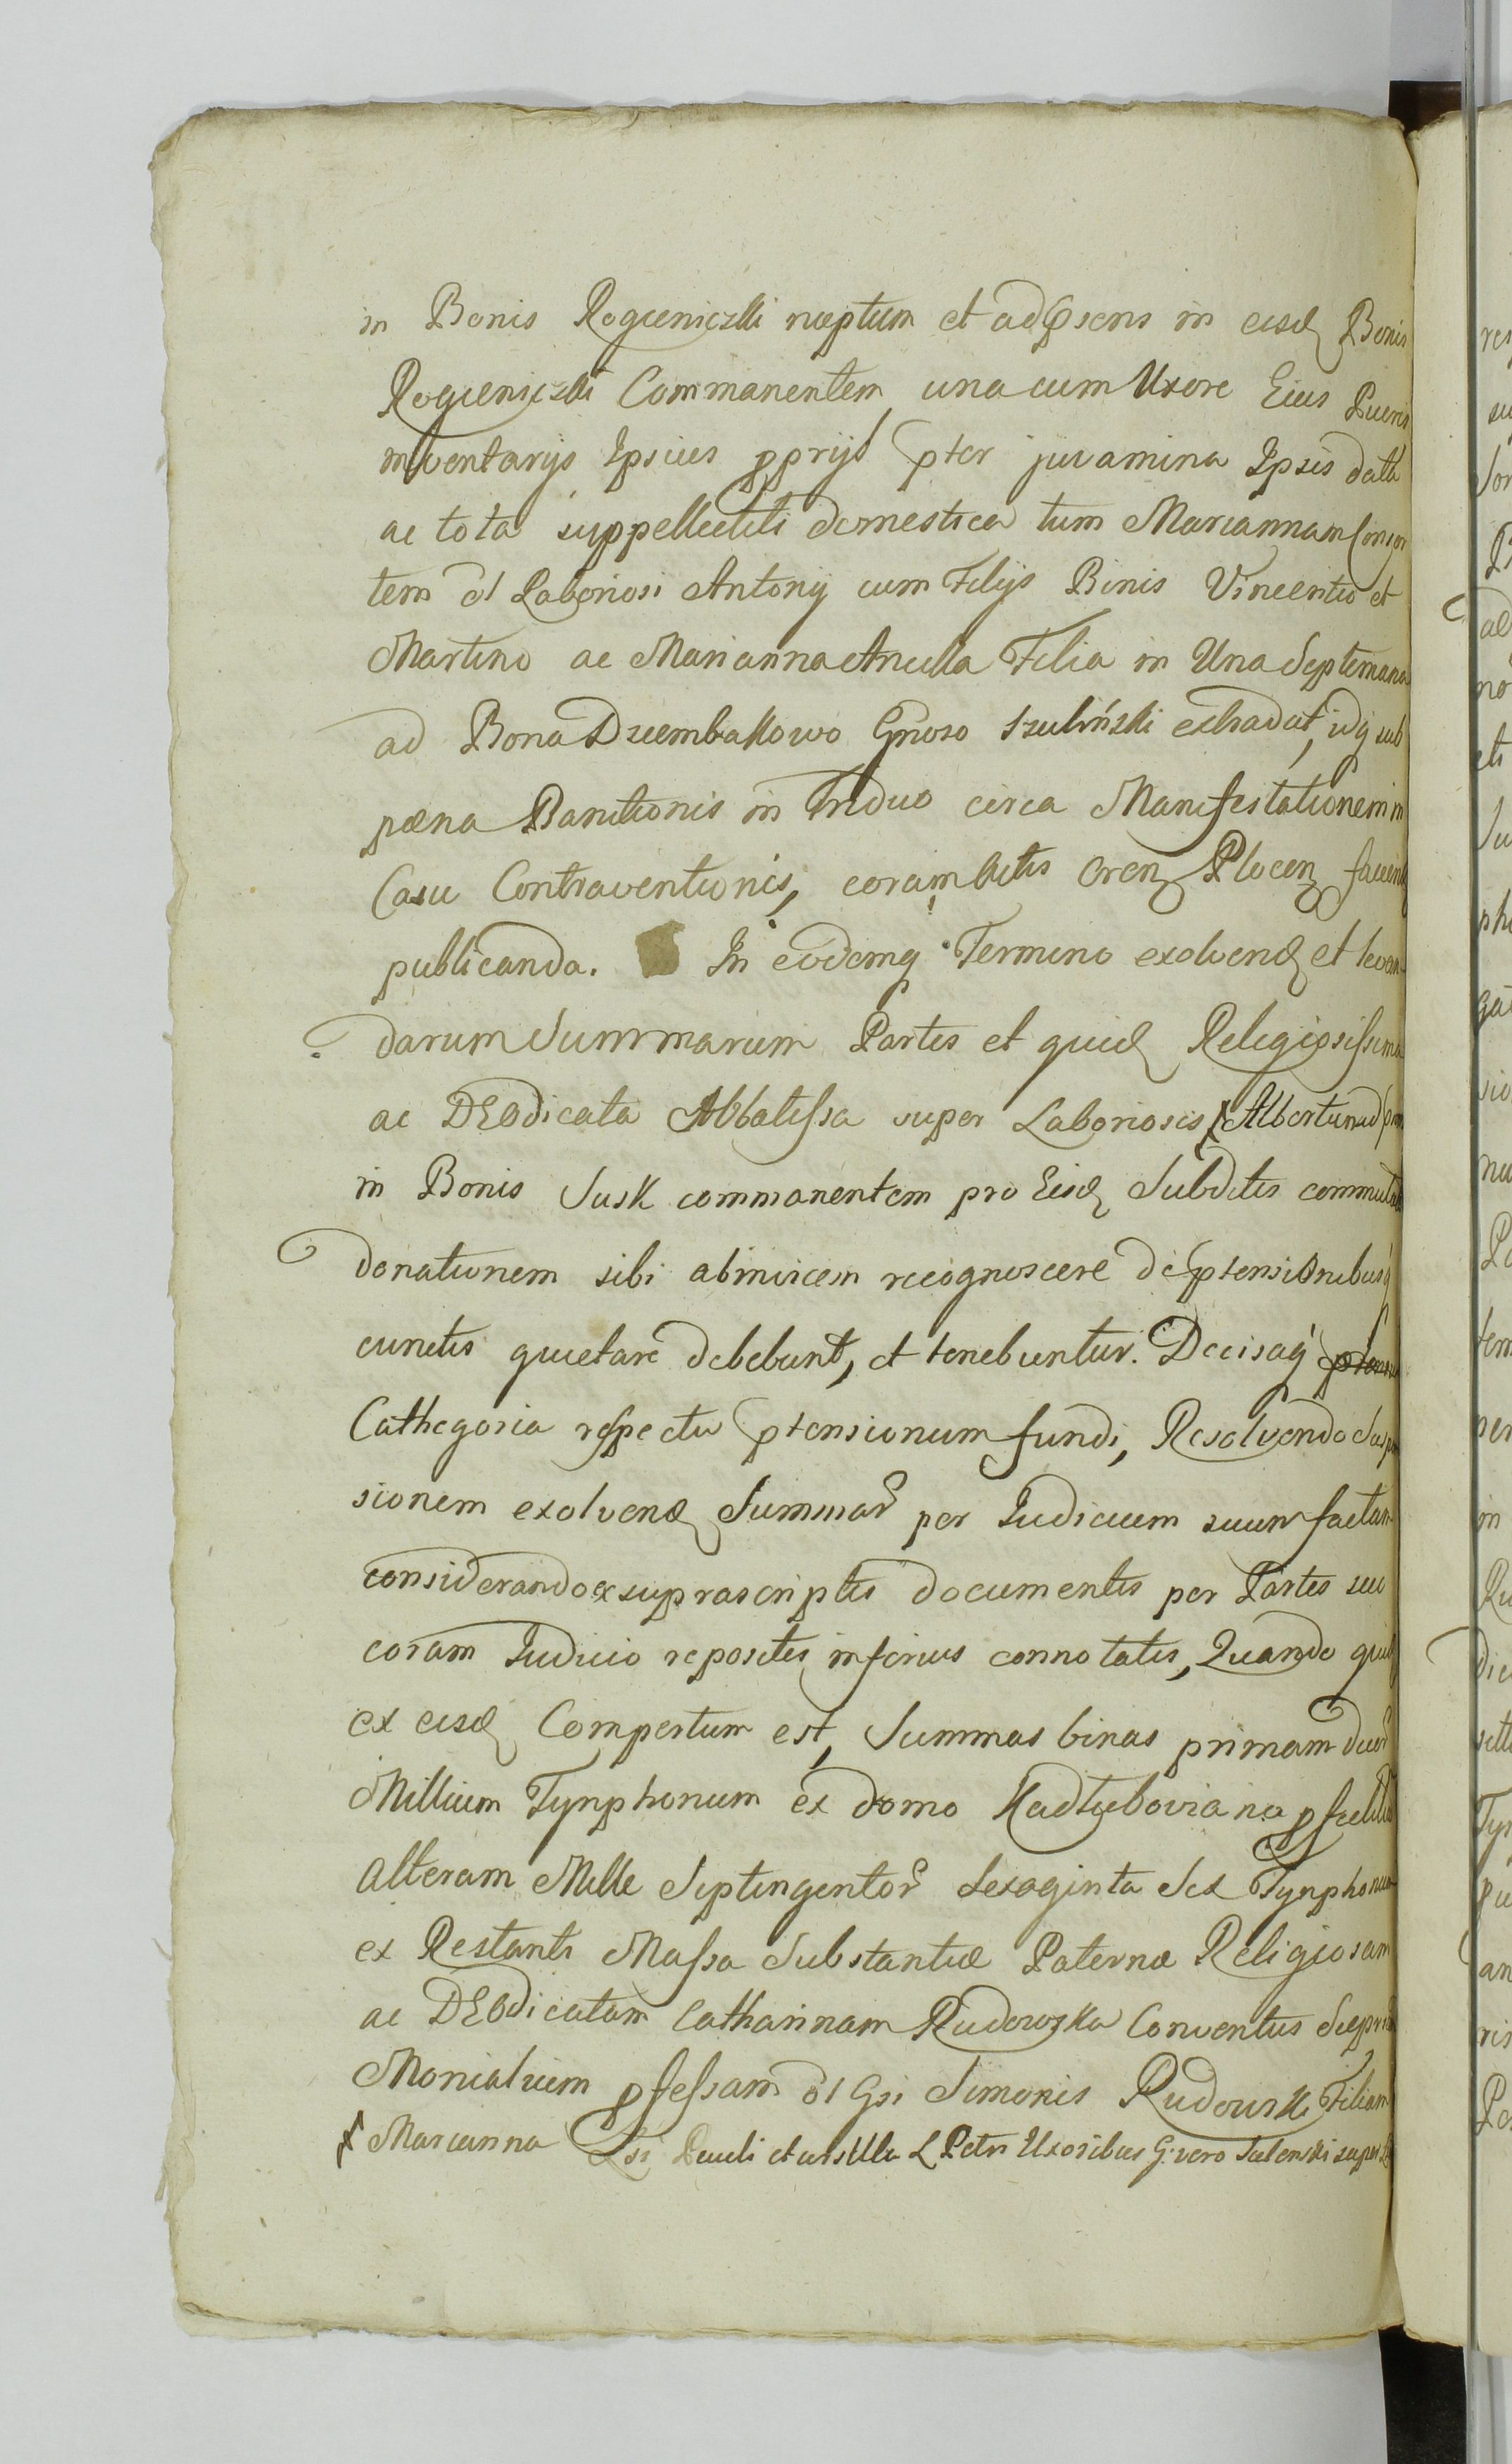 in Bonis Rogieniczki natum et ad psens in eisd Bonis
Rogieniczki Commanentem una cum Uxore Eius Pueris
inventarijs Ipsius pprijs pter juvamina Ipsis data
ac tota suppellectili domestica tum Mariannam Consor
tem ol Laboriosi Antonij cum Filijs Binis Vincentio et
Martino ac Marianna Ancilla Filia in Una Septimana
ad Bona Dziembakowo Gnoso Szuliński extradat, idq sub
pœna Banitionis in Triduo circa Manifestationem in
Casu Contraventionis, coram Actis Cren Plocen
publicanda. In eodemq Termino exolvend et levan-
darum Summarum Partes et quid Religiosissima
ac DEOdicata Abbatissa super Laboriosis Albertum ad
in Bonis Susk commanentem pro Eisd Subditis
donationem sibi abinvicem recognoscere de ptensionibusq
cunctis quietare debebunt, et tenebuntur. Decisaq
Cathegoria respectu ptensionum fundi, Resolvendo
sionem exolvend Summar per Iudicium suum factam
considerando ex suprascriptis documentis per Partes suo
coram Iudicio repositis inferius connotatis, Quando quid
ex eisd Compertum est, Summas binas primam duor
Millium Tynphonum ex domo
Alteram Mille Septingentor Sexaginta Sex Tynphonum
ex Restanti Massa Substantiæ Paternæ Religiosam
ac DEOdicatam Catharinam Rudowska Conventus
Monialium pfessam ol Gsi Simonis Rudowski Filiam
Marianna Lsi Pauli et Ursula L Petri Uxoribus G. vero super